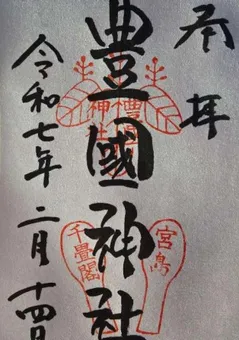 奉拝
豊國神社
令和七年二月十四日
豊国神社
宮島
千畳閣